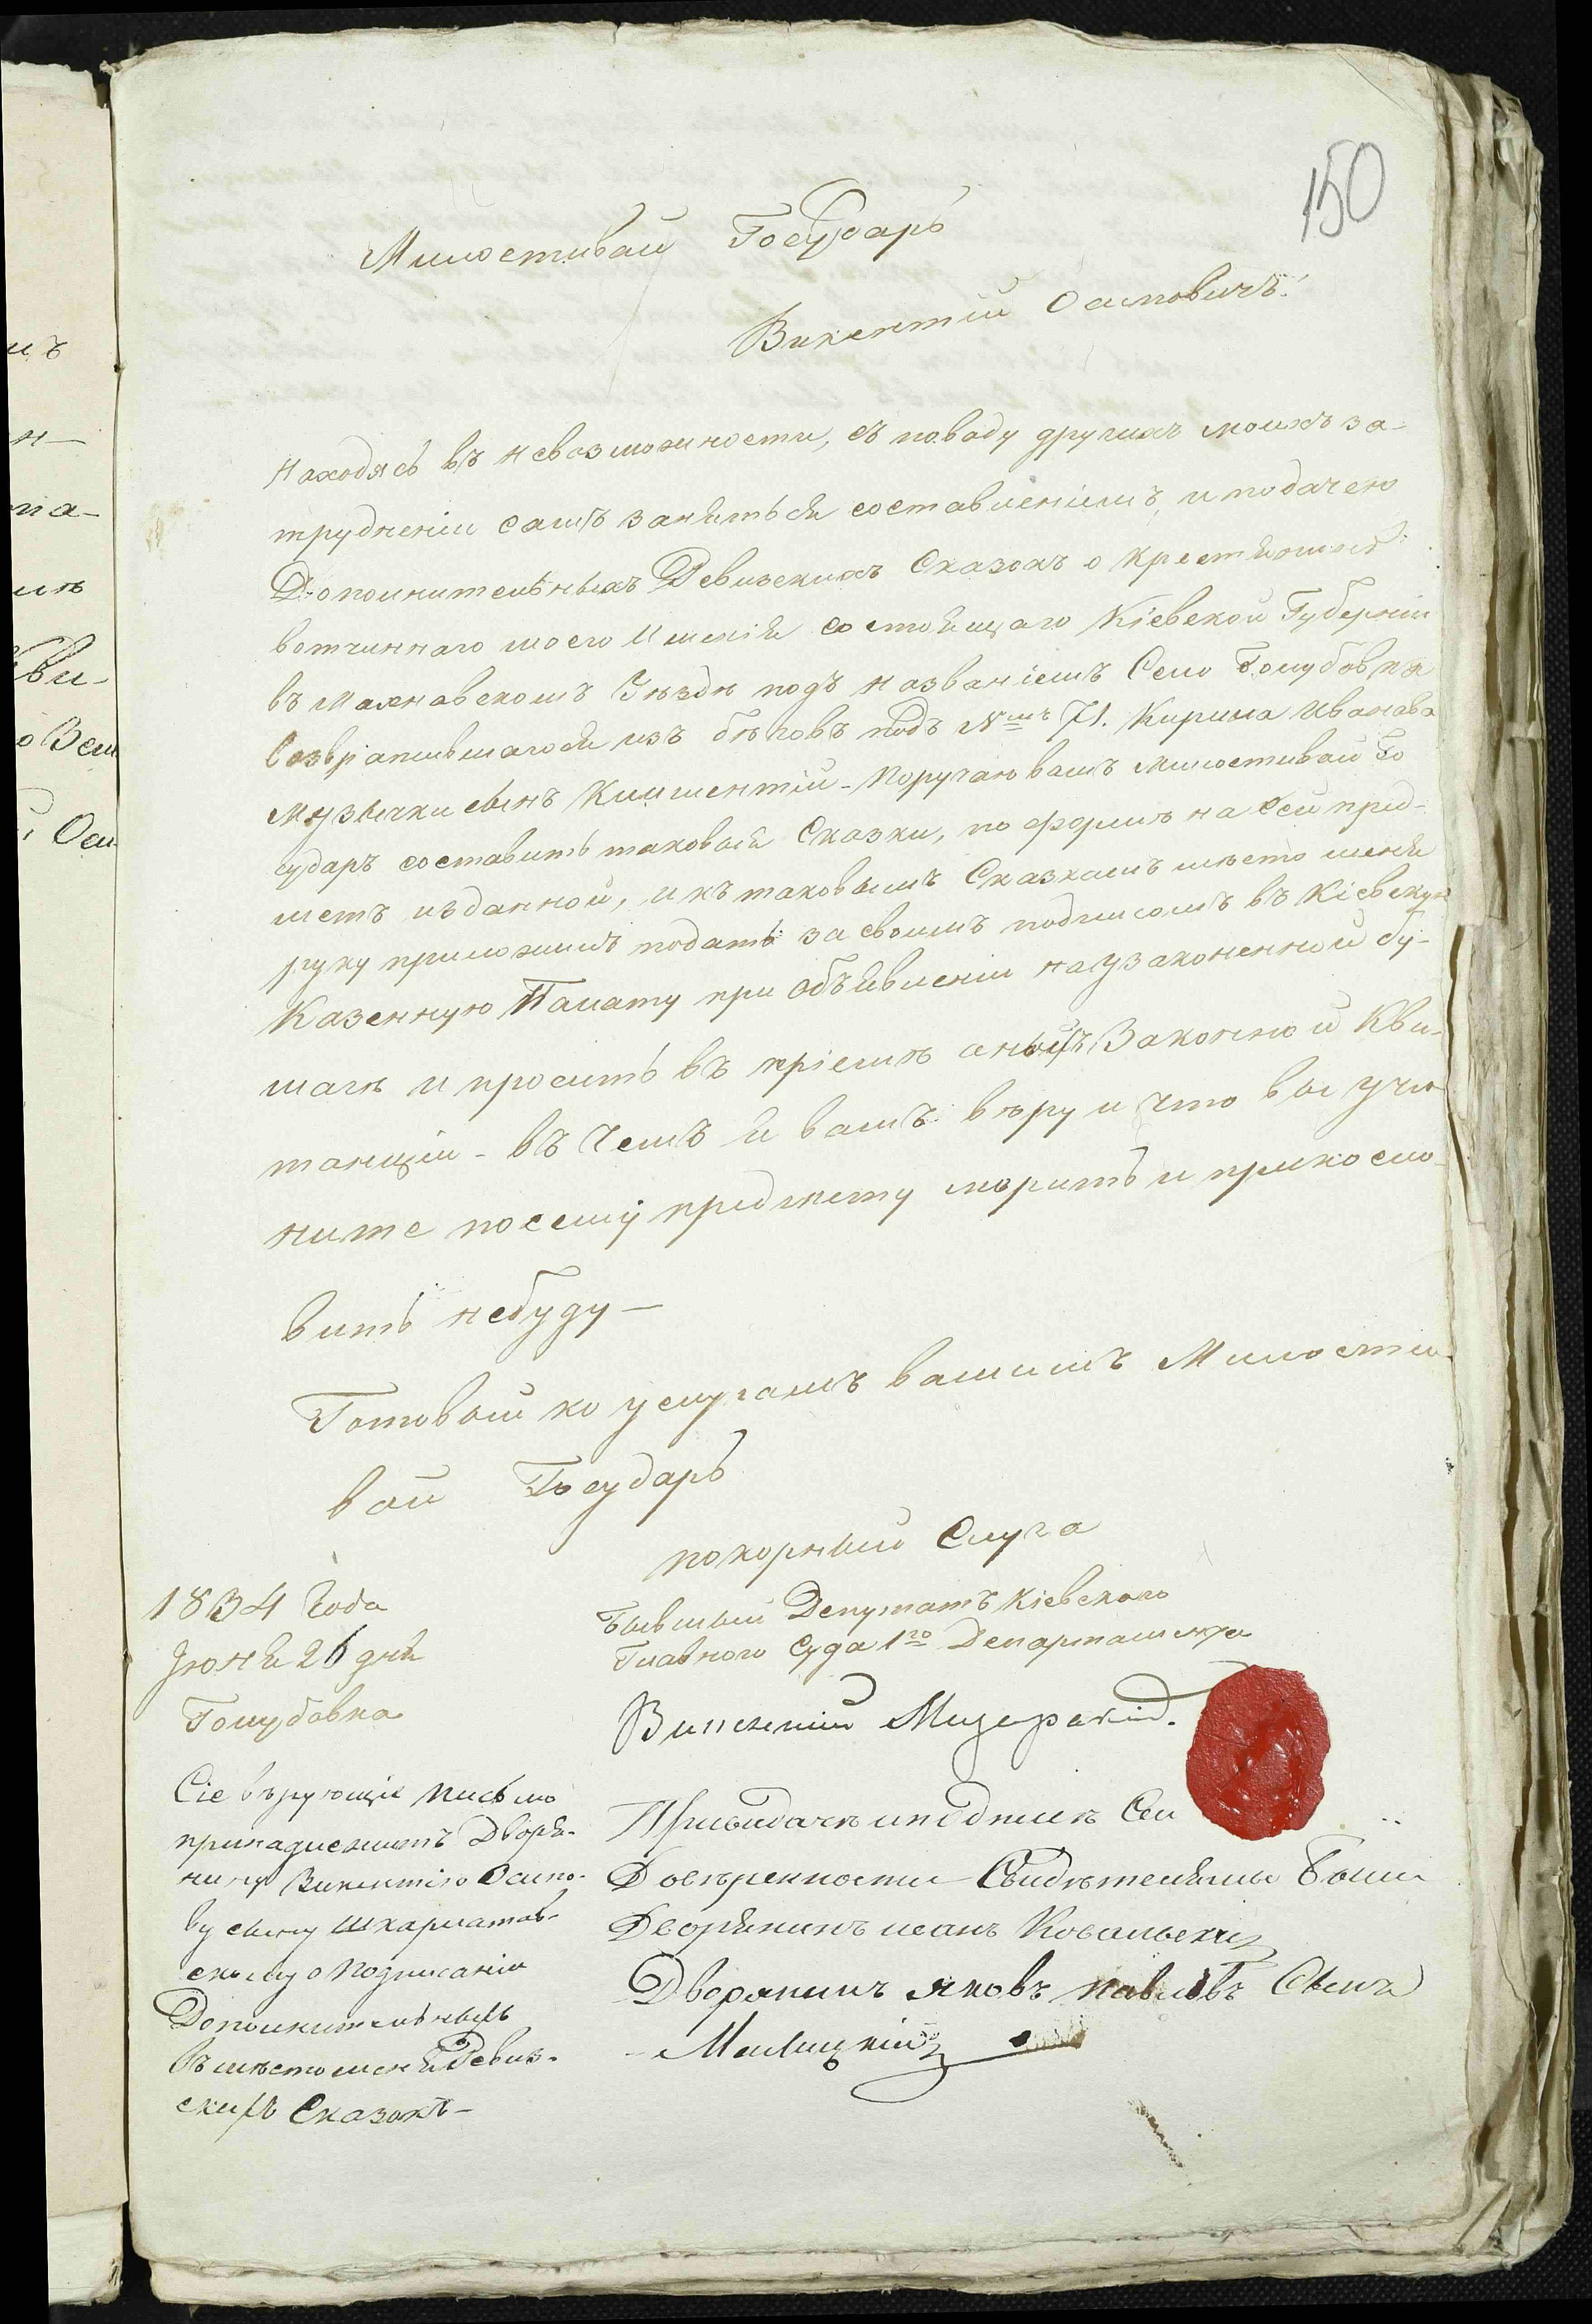 150
Милостивый Государь
Викентій Осиповичъ!
Находясь въ невозможности, съ поводу другихъ моихъ за-
трудненіи самъ заняться составленіемъ, и подачею
Дополнительныхъ Ревизскихъ Сказокъ о крестьянахъ
вотчиннаго моего Именія состоящаго Кіевской Губерніи
въ Махновскомъ Уѣздѣ подъ названіемъ Село Голубовка
Возвратившагося изъ бѣговъ подъ №мъ 71. Кирила Иванова
Музычки сынъ Климентій - Поручаю вамъ Милостивый Го
сударь составить таковыя Сказки, по формѣ на сей пред-
метъ изданной, и къ таковымъ Сказкамъ мѣсто меня
руку приложить подать за своимъ подписомъ въ Кіевскую
Казенную Палату при объявленіи на узаконенной бу-
магѣ и просить въ пріемѣ оныхъ Законной Кви-
танціи - въ чемъ я вамъ вѣру и что вы учи-
ните по сему предмету спорить и прикосло-
вить небуду —
Готовый ко услугамъ вашимъ Милости-
вый Государь
покорный Слуга
1834 Года
Іюня 26 дня
Голубовка
Бывшый Депутатъ Кіевского
Главного Суда 1го Департамента
Викентій
Сіе вѣрующіе письмо
принадлежитъ Дворя-
нину Викентію Осипо-
ву сыну Шкарматов-
скому о подписаніи
Дополнительныхъ
въ мѣсто меня Ревиз-
скихъ Сказокъ -
При выдачѣ и подписѣ Сей
Довѣренности Свидѣтелями были
Дворянинъ иванъ Ковальскій
Дворянинъ яковъ павловъ Сынъ